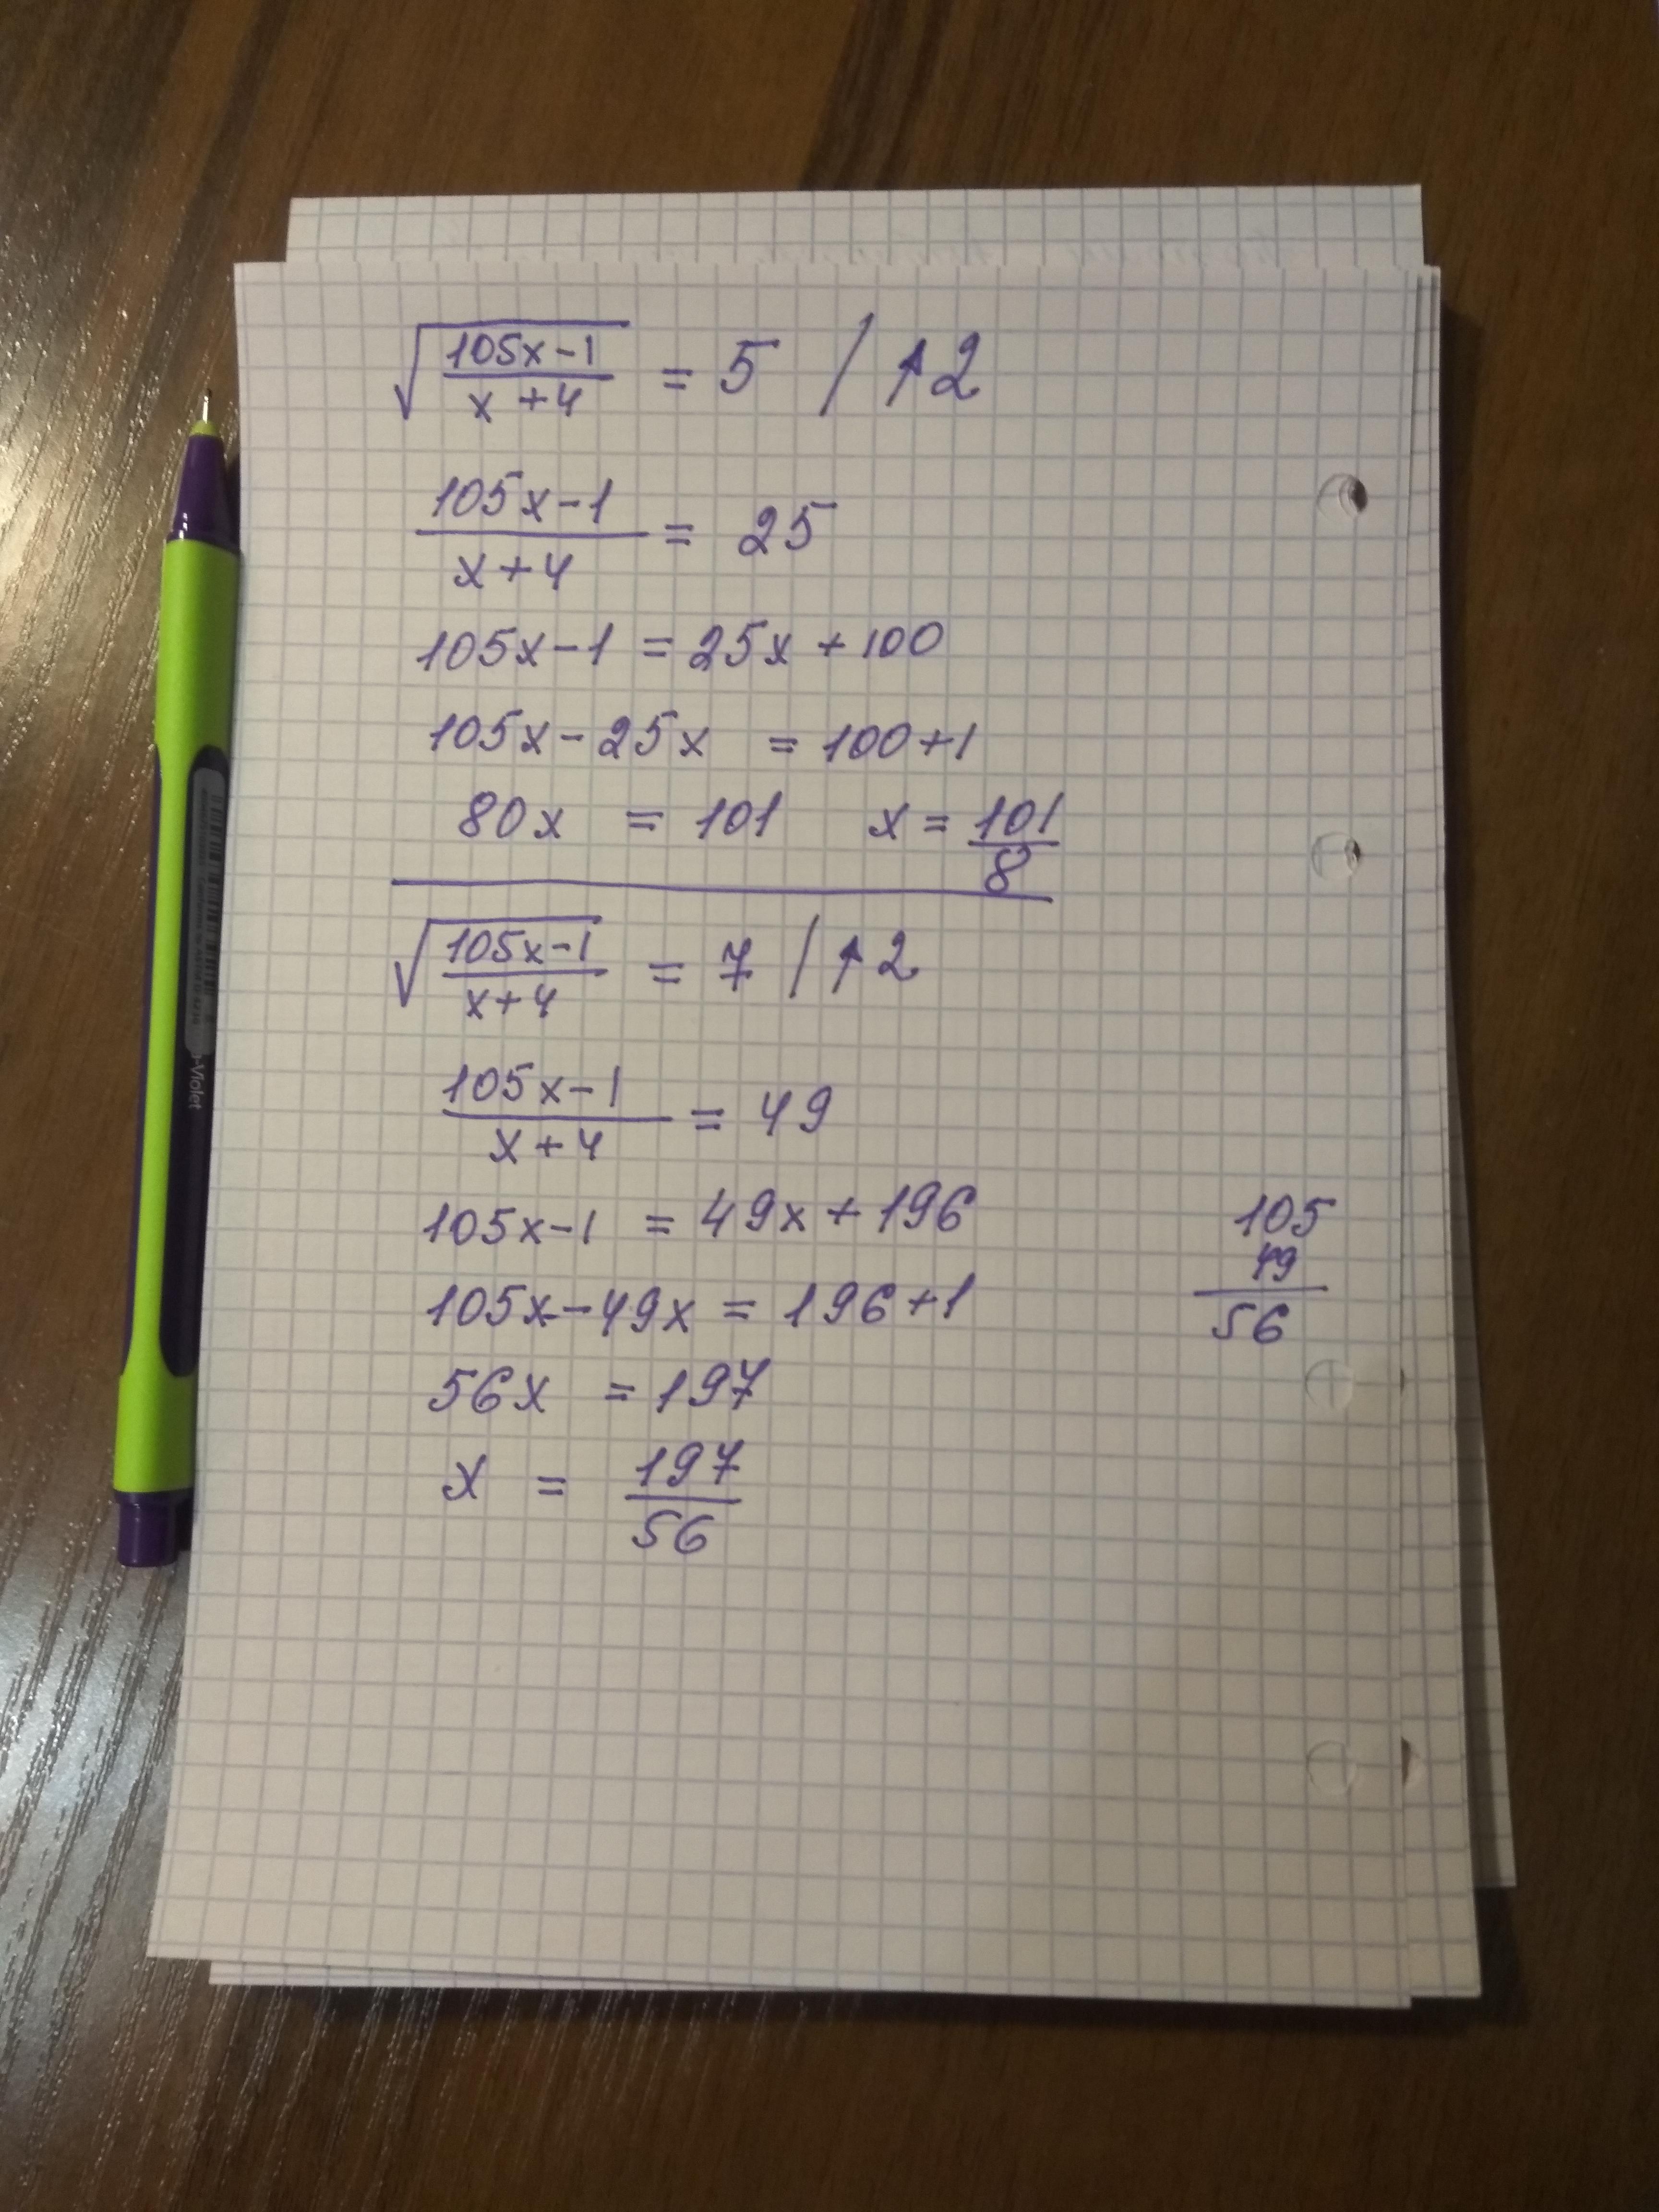 √((105x-1)/(x+4)) = 5 / ↑2
(105x-1)/(x+4) = 25
105x-1 = 25x+100
105x-25x = 100+1
80x = 101 x = 101/8
√((105x-1)/(x+4)) = 7 / ↑2
(105x-1)/(x+4) = 49
105x-1 = 49x+196
105x-49x = 196+1
56x = 197
x = 197/56
105
49
56
-Violet